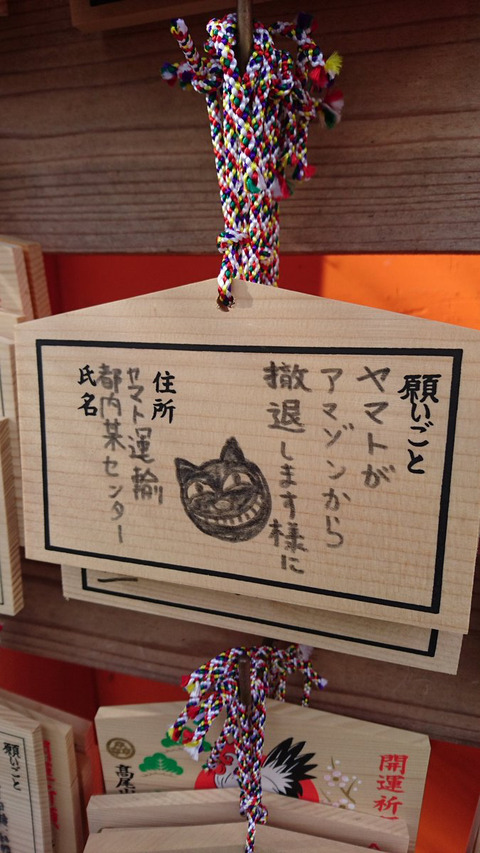 願いごと
ヤマトが
アマゾンから
撤退します様に
住所
ヤマト運輸
都内某センター
氏名
開運祈
願いごと